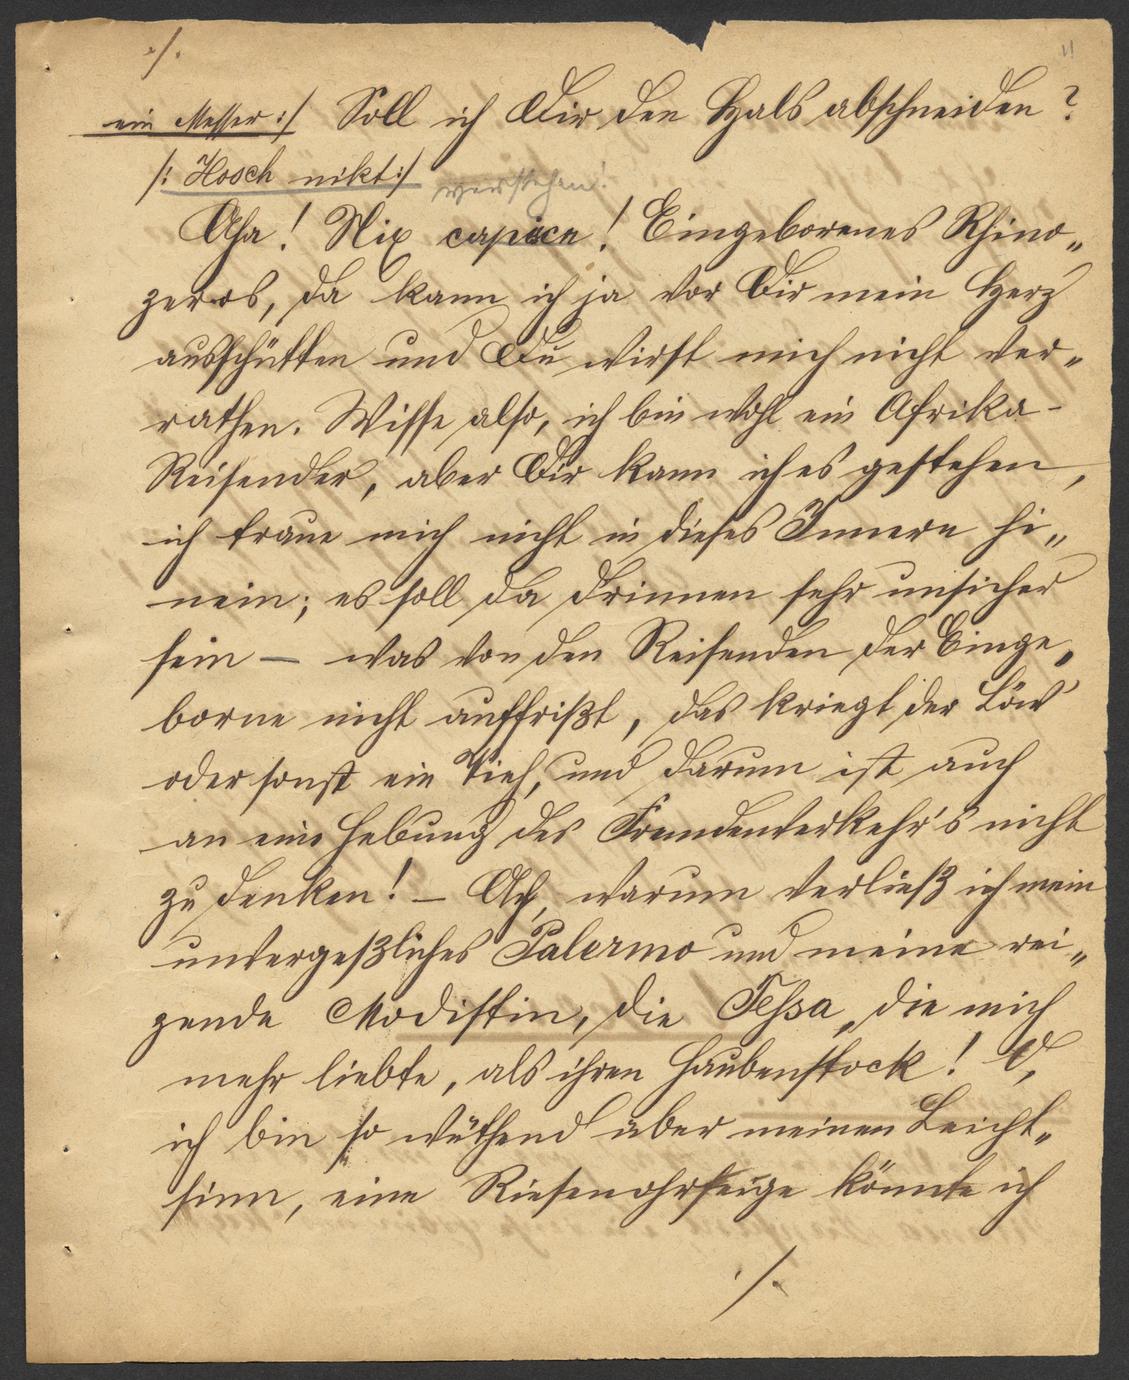 ./.
11
ein Messer :/ Soll ich Dir den Hals abschneiden ?
/: Hosch nikt :/ verstehen!
Aha! Nix capisen! Eingeborenes Rhino„
zeros, da kann ich ja vor Dir mein Herz
ausschütten und Du wirst mich nicht ver„
rathen. Wisse also, ich bin wohl ein Afrika-
Reisender, aber Dir kann ich es gestehen,
ich traue mich nicht in dieses Innere hi„
nein; es soll da drinnen sehr unsicher
sein — was von den Reisenden der Einge„
borne nicht auffrißt, das kriegt der Löw'
oder sonst ein Vieh, und darum ist auch
an eine Hebung des Fremdenverkehr's nicht
zu denken! — Ach, warum verließ ich mein
unvergeßliches Palermo und meine rei„
zende Modistin, die Tessa, die mich
mehr liebte, als ihren Haubenstock! O,
ich bin so wüthend über meinen Leicht„
sinn, eine Riesenohrfeige könnte ich
./.